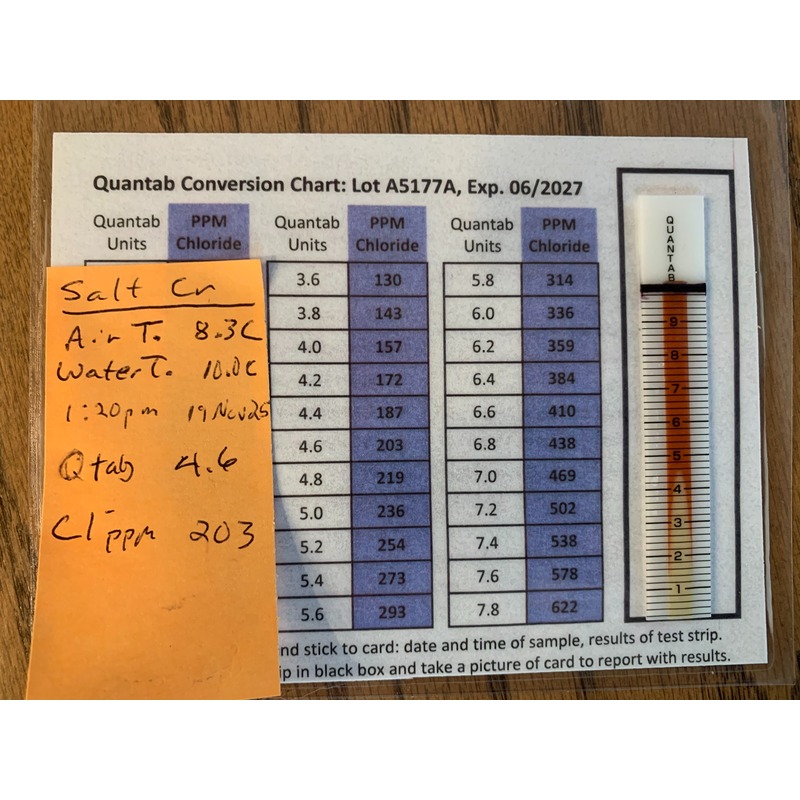 Quantab Conversion Chart: Lot A5177A, Exp. 06/2027
Quantab Units PPM Chloride Quantab Units PPM Chloride Quantab Units PPM Chloride
3.6 130 5.8 314
3.8 143 6.0 336
4.0 157 6.2 359
4.2 172 6.4 384
4.4 187 6.6 410
4.6 203 6.8 438
4.8 219 7.0 469
5.0 236 7.2 502
5.2 254 7.4 538
5.4 273 7.6 578
5.6 293 7.8 622
nd stick to card: date and time of sample, results of test strip.
ip in black box and take a picture of card to report with results.
Salt Cr
Air T. 8.3C
Water T. 10.0C
1:20pm 19Nov25
Qtab 4.6
Cl⁻ ppm 203
QUANTAB
9
8
7
6
5
4
3
2
1